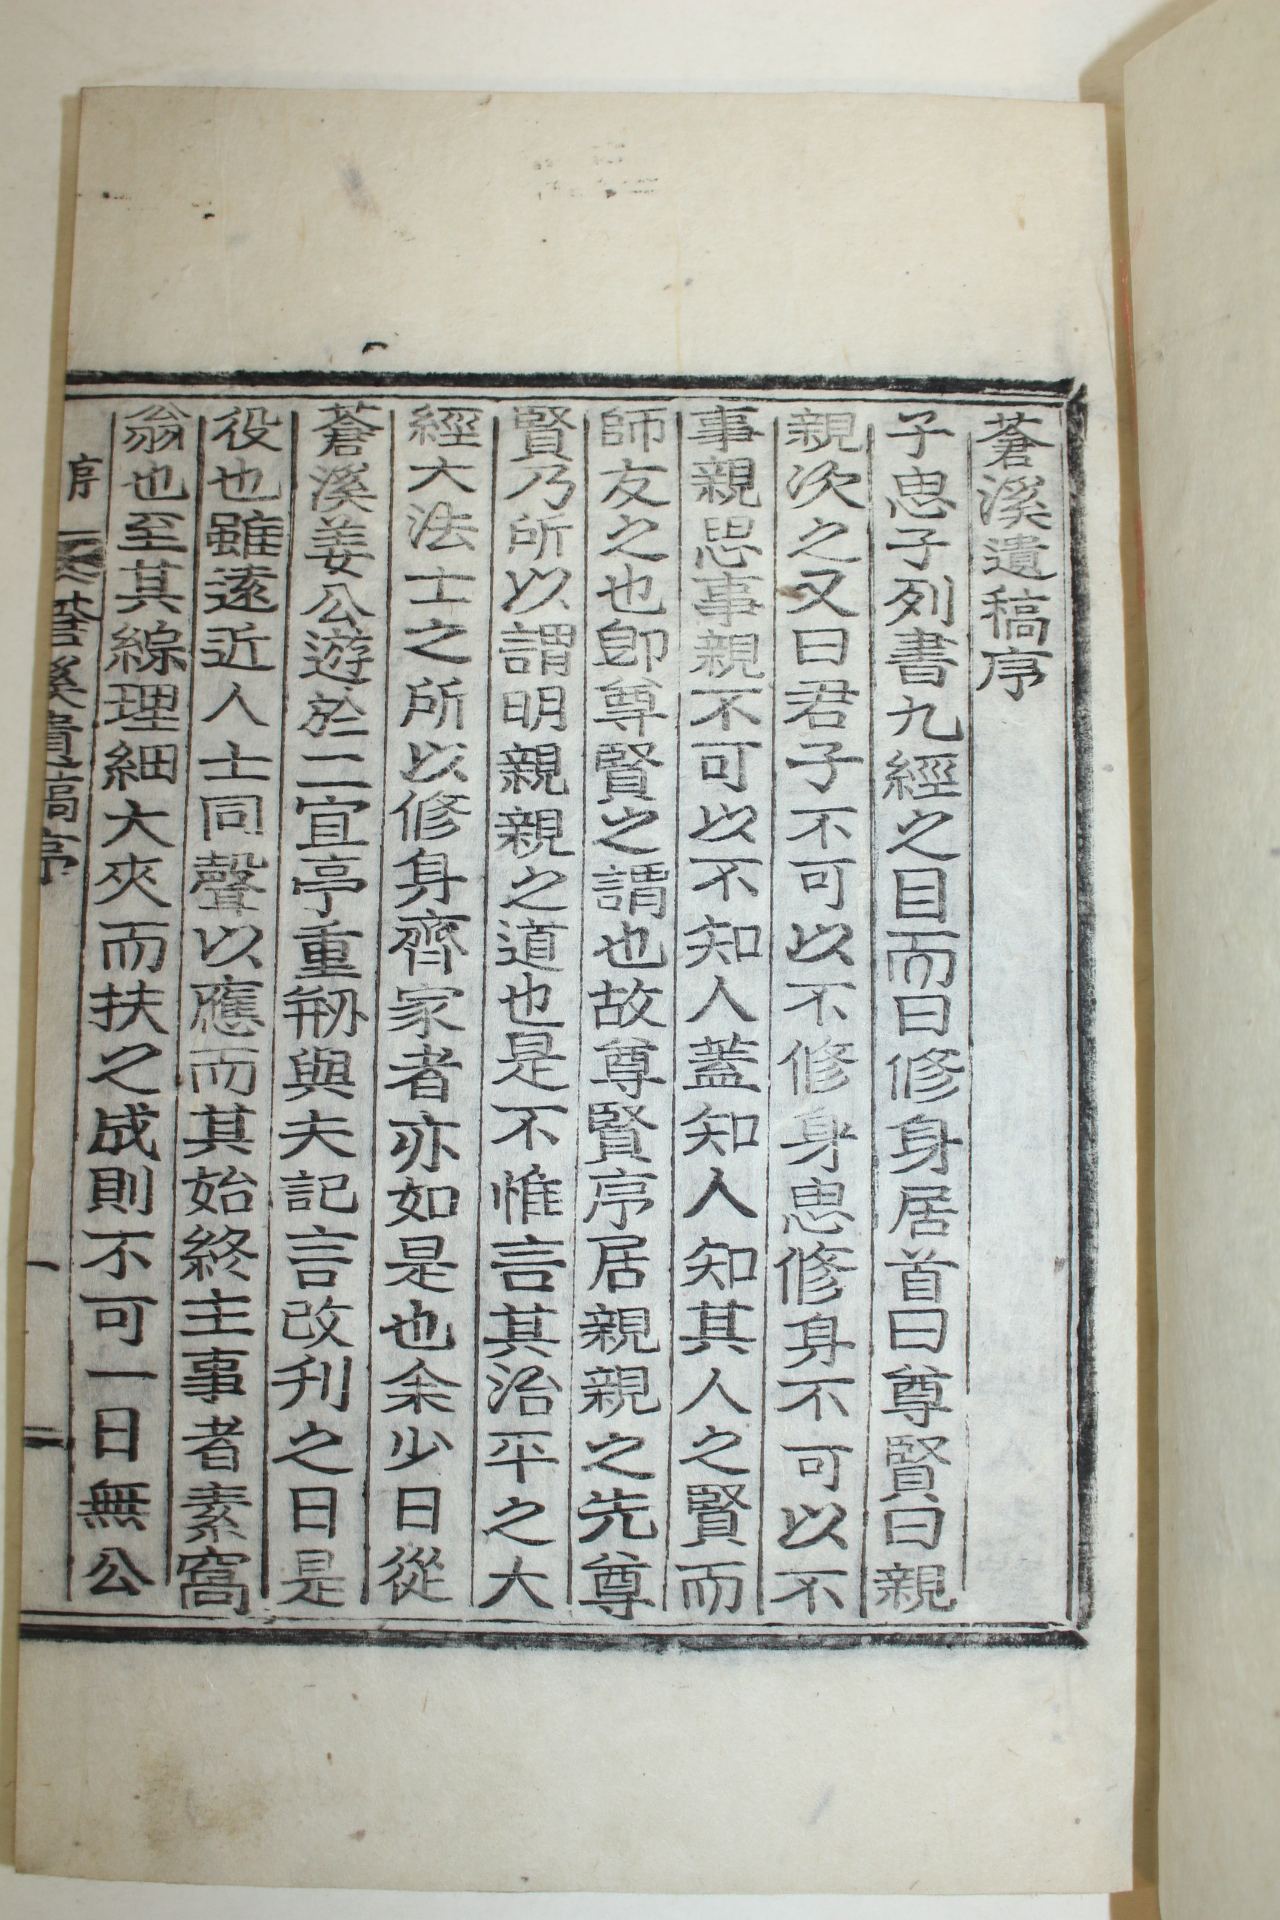 蒼溪遺稿序
子思子列書九經之目而曰修身居首曰尊賢曰親
親次之又曰君子不可以不修身思修身不可以不
事親思事親不可以不知人蓋知人知其人之賢而
師友之也卽尊賢之謂也故尊賢序居親親之先尊
賢乃所以謂明親親之道也是不惟言其治平之大
經大法士之所以修身齊家者亦如是也余少日從
蒼溪姜公遊於二宜亭重刱與夫記言改刋之日是
役也雖遠近人士同聲以應而其始終主事者素窩
翁也至其綜理細大夾而扶之成則不可一日無公
序
蒼溪遺稿序
一